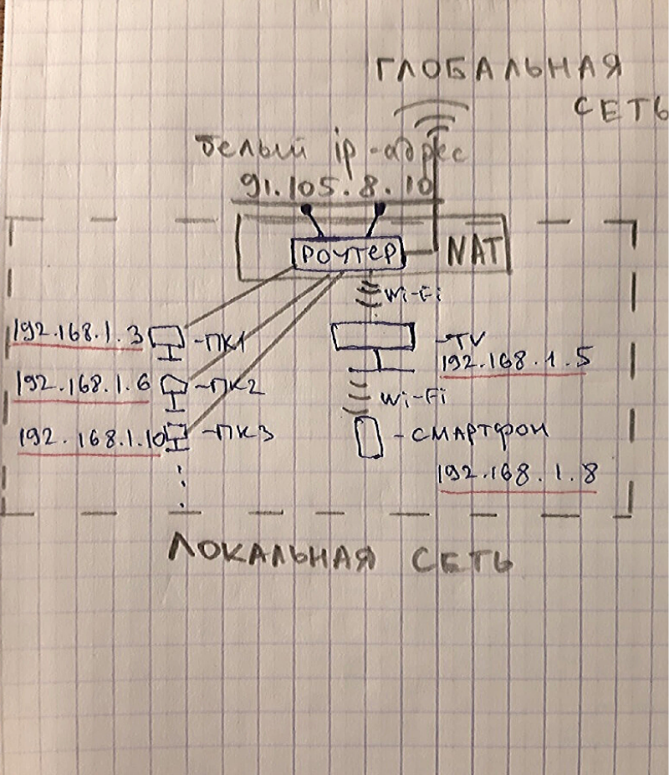 ГЛОБАЛЬНАЯ
СЕТЬ
белый ip-адрес
91.105.8.10
РОУТЕР
NAT
Wi-Fi
192.168.1.3
-ПК1
-TV
192.168.1.5
192.168.1.6
-ПК2
Wi-Fi
192.168.1.10
-ПК3
-СМАРТФОН
192.168.1.8
ЛОКАЛЬНАЯ СЕТЬ